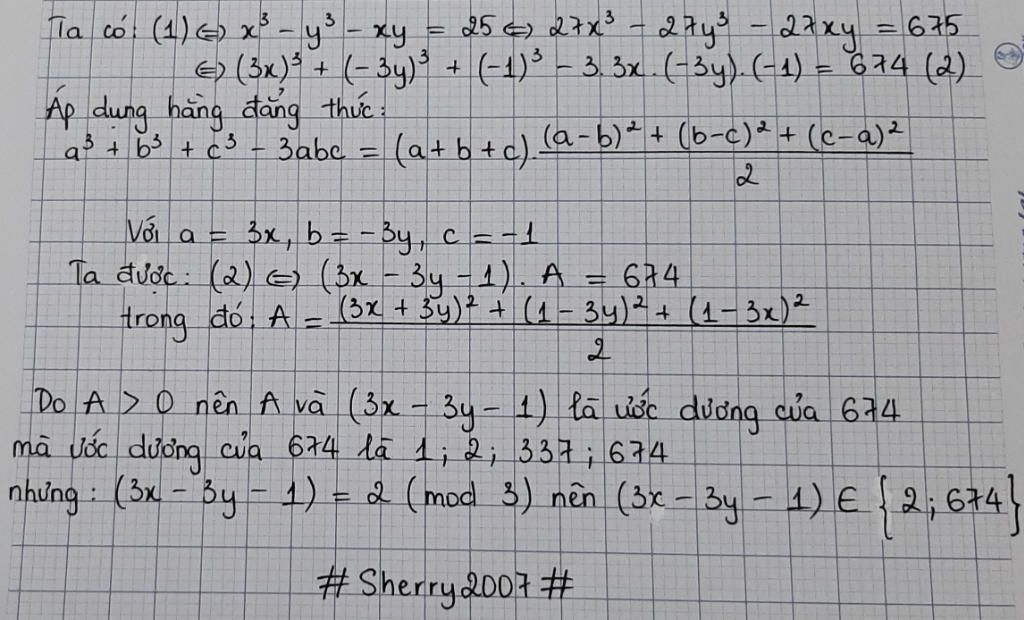 Ta có: (1) ⇔ x³ - y³ - xy = 25 ⇔ 27x³ - 27y³ - 27xy = 675
⇔ (3x)³ + (-3y)³ + (-1)³ - 3.3x.(-3y).(-1) = 674 (2)
Áp dụng hằng đẳng thức:
a³ + b³ + c³ - 3abc = (a + b + c). \frac{(a - b)² + (b - c)² + (c - a)²}{2}
Với a = 3x, b = -3y, c = -1
Ta được: (2) ⇔ (3x - 3y - 1). A = 674
trong đó: A = \frac{(3x + 3y)² + (1 - 3y)² + (1 - 3x)²}{2}
Do A > 0 nên A và (3x - 3y - 1) là ước dương của 674
mà ước dương của 674 là 1; 2; 337; 674
nhưng: (3x - 3y - 1) = 2 (mod 3) nên (3x - 3y - 1) ∈ {2; 674}
# Sherry2007 #